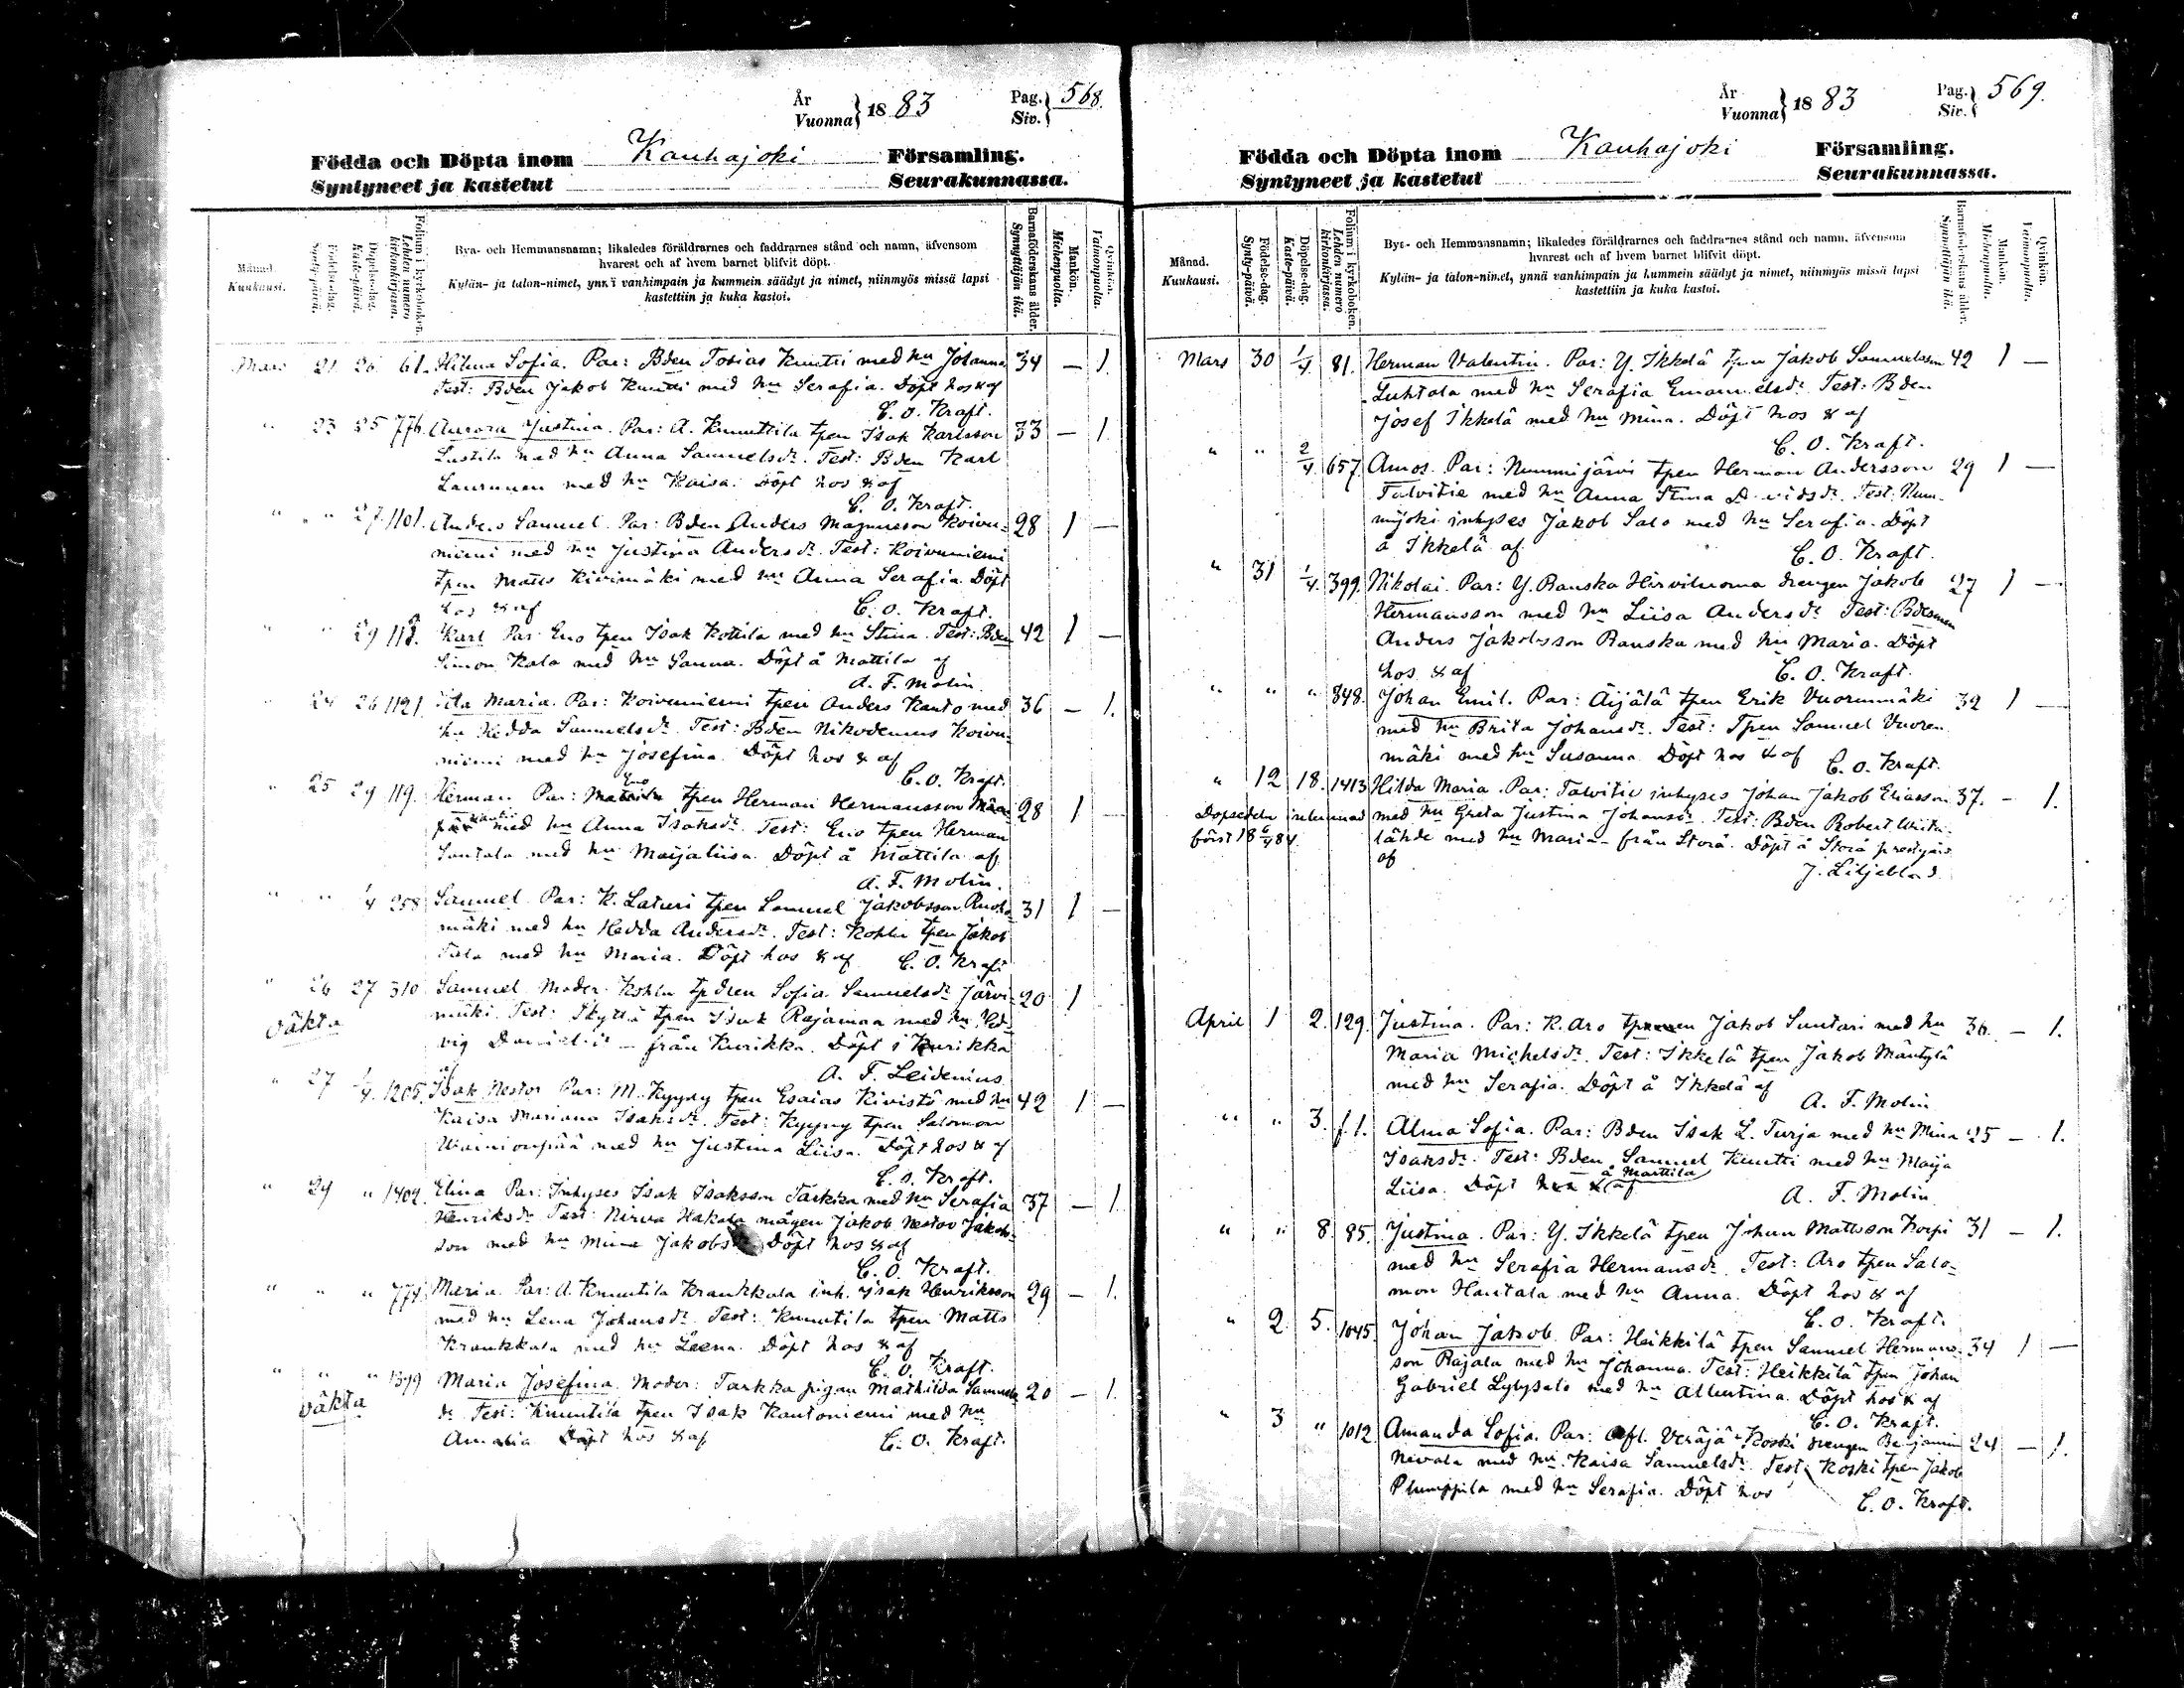 År
Vuonna } 18 83
Pag.
Siv. } 568.
Födda och Döpta inom Kauhajoki Församling.
Syntyneet ja kastetut Seurakunnassa.
Månad.
Kuukausi.
Födelse-dag.
Synty-päivä.
Döpelse-dag.
Kaste-päivä.
Folium i kyrkoboken.
Lehden numero kirkonkirjassa.
Bya- och Hemmansnamn; likaledes föräldrarnes och faddrarnes stånd och namn, äfvensom
hvarest och af hvem barnet blifvit döpt.
Kylän- ja talon-nimet, ynnä vanhimpain ja kummein säädyt ja nimet, niinmyös missä lapsi
kastettiin ja kuka kastoi.
Barnaföderskans ålder.
Synnyttäjän ikä.
Mankön.
Miehenpuolta.
Qvinkön.
Vaimonpuolta.
Mars 21 26 61. Hilma Sofia. Par: Bden Tobias Knutti med hu Johanna 34 — 1.
Test: Bden Jakob Knutti med hu Serafia. Döpt hos & af
C. O. Kraft.
" 23 25 776. Aurora Justina. Par: A. Knuuttila tpen Isak Karlsson 33 — 1.
Lustila med hu Anna Samuelsdr. Test: Bden Karl
Laurunen med hu Kaisa. Döpt hos & af
C. O. Kraft.
" " 27. 1101. Anders Samuel. Par: Bden Anders Magnusson Koivu- 28 1 —
niemi med hu Justina Andersdr. Test: Koivuniemi
tpen Matts Kivimäki med hu Anna Serafia. Döpt
hos & af C. O. Kraft.
" " 29 118. Karl Par: Eno tpen Isak Kottila med hu Stina. Test: Bden 42 1 —
Simon Kala med hu Sanna. Döpt å Mattila af
A. F. Molin.
" 24 26 1121. Ida Maria. Par: Koivuniemi tpen Anders Kanto med 36 — 1.
hu Hedda Samuelsdr. Test: Bden Nikodemus Koivu-
niemi med hu Josefina. Döpt hos & af
C. O. Kraft.
" 25 29 119. Herman Par: Eno tpen Herman Hermansson 28 1 —
med hu Anna Isaksdr. Test: Eno tpen Herman
Santala med hu Maijaliisa. Döpt å Mattila af
A. F. Molin.
" " 1/4 258 Samuel. Par: K. Laturi tpen Samuel Jakobsson Ruoho- 31 1 —
mäki med hu Hedda Andersdr. Test: Kohlu tpen Jakob
Tala med hu Maria. Döpt hos & af C. O. Kraft
" 26 27 310 Samuel. Moder: Kohlu tpdren Sofia Samuelsdr Järvi- 20 1
oäkta mäki. Test: Skyttä tpen Isak Rajamaa med hu Hed-
vig Davidsdr — från Kurikka. Döpt i Kurikka
af A. F. Leidenius.
" 27 1/4. 1205. Isak Nestor Par: M. Kyyny tpen Esaias Kivistö med hu 42 1 —
Kaisa Mariana Isaksdr. Test: Kyyny tpen Salomon
Wainionpää med hu Justina Liisa. Döpt hos & af
C. O. Kraft.
" 29 " 1402. Elina Par: Inhyses Isak Isaksson Tarkka med hu Serafia 37 — 1
Henriksdr Test: Nirva Hakala mågen Jakob Nestor Jakobs-
son med hu Mina Jakobsdr Döpt hos & af
C. O. Kraft.
" " " 774. Maria. Par: A. Knuutila Kraukkala inh. Isak Henriksson 29 — 1.
med hu Lena Johansdr. Test: Knuutila tpen Matts
Kraukkala med hu Leena. Döpt hos & af
C. O. Kraft.
" " " 1399 Maria Josefina. Moder: Tarkka pigan Mathilda Samuels- 20 — 1.
oäkta dr Test: Knuutila tpen Isak Kantoniemi med hu
Amalia Döpt hos & af C. O. Kraft.
År
Vuonna } 18 83
Pag.
Siv. } 569.
Födda och Döpta inom Kauhajoki Församling.
Syntyneet ja kastetut Seurakunnassa.
Månad.
Kuukausi.
Födelse-dag.
Synty-päivä.
Döpelse-dag.
Kaste-päivä.
Folium i kyrkoboken.
Lehden numero kirkonkirjassa.
Bya- och Hemmansnamn; likaledes föräldrarnes och faddrarnes stånd och namn, äfvensom
hvarest och af hvem barnet blifvit döpt.
Kylän- ja talon-nimet, ynnä vanhimpain ja kummein säädyt ja nimet, niinmyös missä lapsi
kastettiin ja kuka kastoi.
Barnaföderskans ålder.
Synnyttäjän ikä.
Mankön.
Miehenpuolta.
Qvinkön.
Vaimonpuolta.
Mars 30 1/4 81. Herman Valentin. Par: Y. Ikkelä tpen Jakob Samuelsson 42 1 —
Luhtala med hu Serafia Emanuelsdr. Test: Bden
Josef Ikkelä med hu Mina. Döpt hos & af
C. O. Kraft.
" " 2/4. 657. Amos. Par: Nummijärvi tpen Herman Andersson 29 1 —
Talvitie med hu Anna Stina Davidsdr. Test: Num-
mijoki inhyses Jakob Salo med hu Serafia. Döpt
å Ikkelä af C. O. Kraft.
" 31 1/4. 399. Nikolai. Par: Y. Panska Hirviluoma drengen Jakob 27 1 —
Hermansson med hu Liisa Andersdr Test: Bdesmen
Anders Jakobsson Panska med hu Maria. Döpt
hos & af C. O. Kraft.
" " " 848. Johan Emil. Par: Äijälä tpen Erik Vuorenmäki 32 1 —
med hu Brita Johansdr. Test: Tpen Samuel Vuoren
mäki med hu Susanna. Döpt hos & af C. O. Kraft.
" 12 18. 1413 Hilda Maria. Par: Talvitie inhyses Johan Jakob Eliasson 37. — 1.
Dopsedeln inlemnad med hu Greta Justina Johansdr. Test: Bden Robert
först 18 6/4 84. lähde med hu Maria — från Storå. Döpt å Storå prestgård
af J. Liljeblad.
April 1 2. 129. Justina. Par: K. Aro Jakob Suntari med hu 36. — 1.
Maria Michelsdr. Test: Ikkelä tpen Jakob Mäntylä
med hu Serafia. Döpt å Ikkelä af
A. F. Molin
" " 3. f. 1. Alma Sofia. Par: Bden Isak L. Turja med hu Mina 25 — 1.
Isaksdr. Test: Bden Samuel Knutti med hu Maija
Liisa. Döpt å Marttila af
A. F. Molin
" " 8. 85. Justina. Par: Y. Ikkelä tpen Johan Mattsson Korpi 31 — 1.
med hu Serafia Hermansdr. Test: Aro tpen Salo-
mon Hautala med hu Anna. Döpt hos & af
C. O. Kraft.
" 2. 5. 1045. Johan Jakob. Par: Heikkilä tpen Samuel Hermans- 34 1 —
son Rajala med hu Johanna. Test: Heikkilä tpen Johan
Gabriel Lylysalo med hu Albertina. Döpt hos & af
C. O. Kraft.
" 3 " 1012. Amanda Sofia. Par: Öfl. Veräjä-Koski drengen Benjamin 24 — 1.
Nevala med hu Kaisa Samuelsdr. Test: Koski tpen Jakob
Plumppila med hu Serafia. Döpt hos C. O. Kraft.